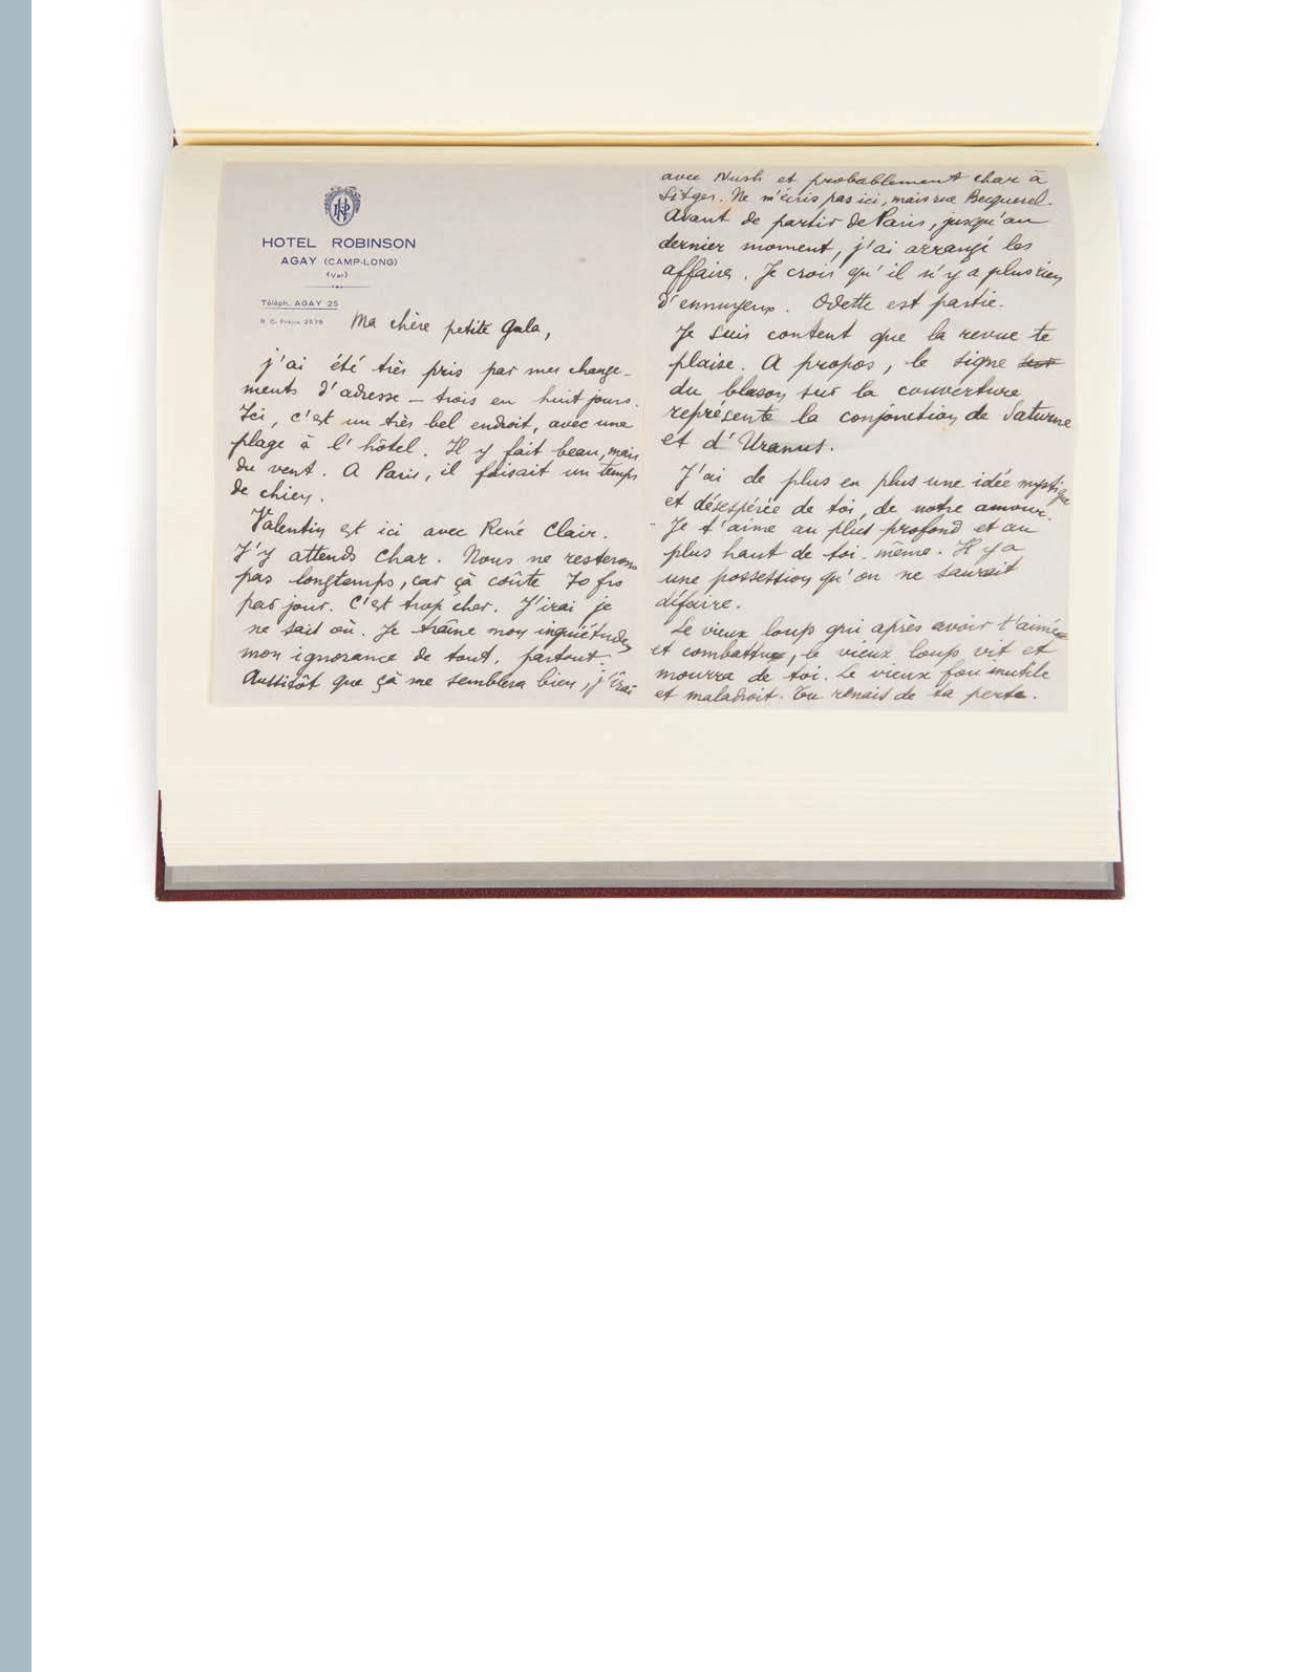 HOTEL ROBINSON
AGAY (CAMP-LONG)
(Var)
Téléph. AGAY 25
R. C. Fréjus 2578
Ma chère petite Gala,
j'ai été très pris par mes change-
ments d'adresse — trois en huit jours.
Ici, c'est un très bel endroit, avec une
plage à l'hôtel. Il y fait beau, mais
du vent. A Paris, il faisait un temps
de chien.
Valentin est ici avec René Clair.
J'y attends Char. Nous ne resterons
pas longtemps, car çà coûte 70 frs
par jour. C'est trop cher. J'irai je
ne sait où. Je traîne mon inquiétude,
mon ignorance de tout, partout.
Aussitôt que çà me semblera bien, j'irai
avec Nush et probablement Char à
Sitges. Ne m'écris pas ici, mais rue Becquerel.
Avant de partir de Paris, jusqu'au
dernier moment, j'ai arrangé les
affaires. Je crois qu'il n'y a plus rien
d'ennuyeux. Odette est partie.
Je suis content que la revue te
plaise. A propos, le signe
du blason sur la couverture
représente la conjonction de Saturne
et d'Uranus.
J'ai de plus en plus une idée mystique
et désespérée de toi, de notre amour.
Je t'aime au plus profond et au
plus haut de toi-même. Il y a
une possession qu'on ne saurait
défaire.
Le vieux loup qui après avoir t'aimée
et combattue, le vieux loup vit et
mourra de toi. Le vieux fou inutile
et maladroit. Tu renais de ta perte.